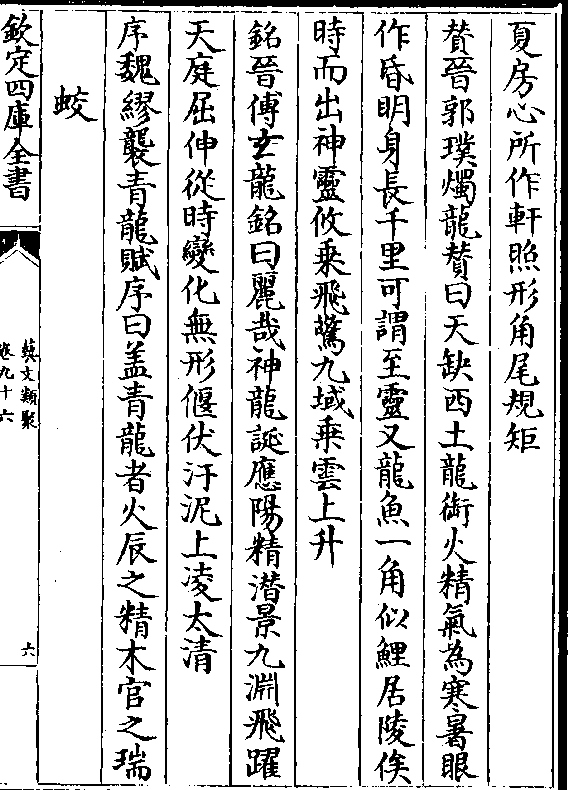 夏房心所作軒照形角尾規矩
賛晉郭璞燭龍賛曰天缺西土龍銜火精氣為寒暑眼
作昏明身長千里可謂至靈又龍魚一角似鯉居陵俟
時而出神靈攸乗飛騖九域乗雲上升
銘晉傅𤣥龍銘曰麗哉神龍誕應陽精潜景九淵飛躍
天庭屈伸從時變化無形偃伏汙泥上凌太清
序魏繆襲青龍賦序曰盖青龍者火辰之精木官之瑞
蛟
欽定四庫全書
藝文類聚
卷九十六
六